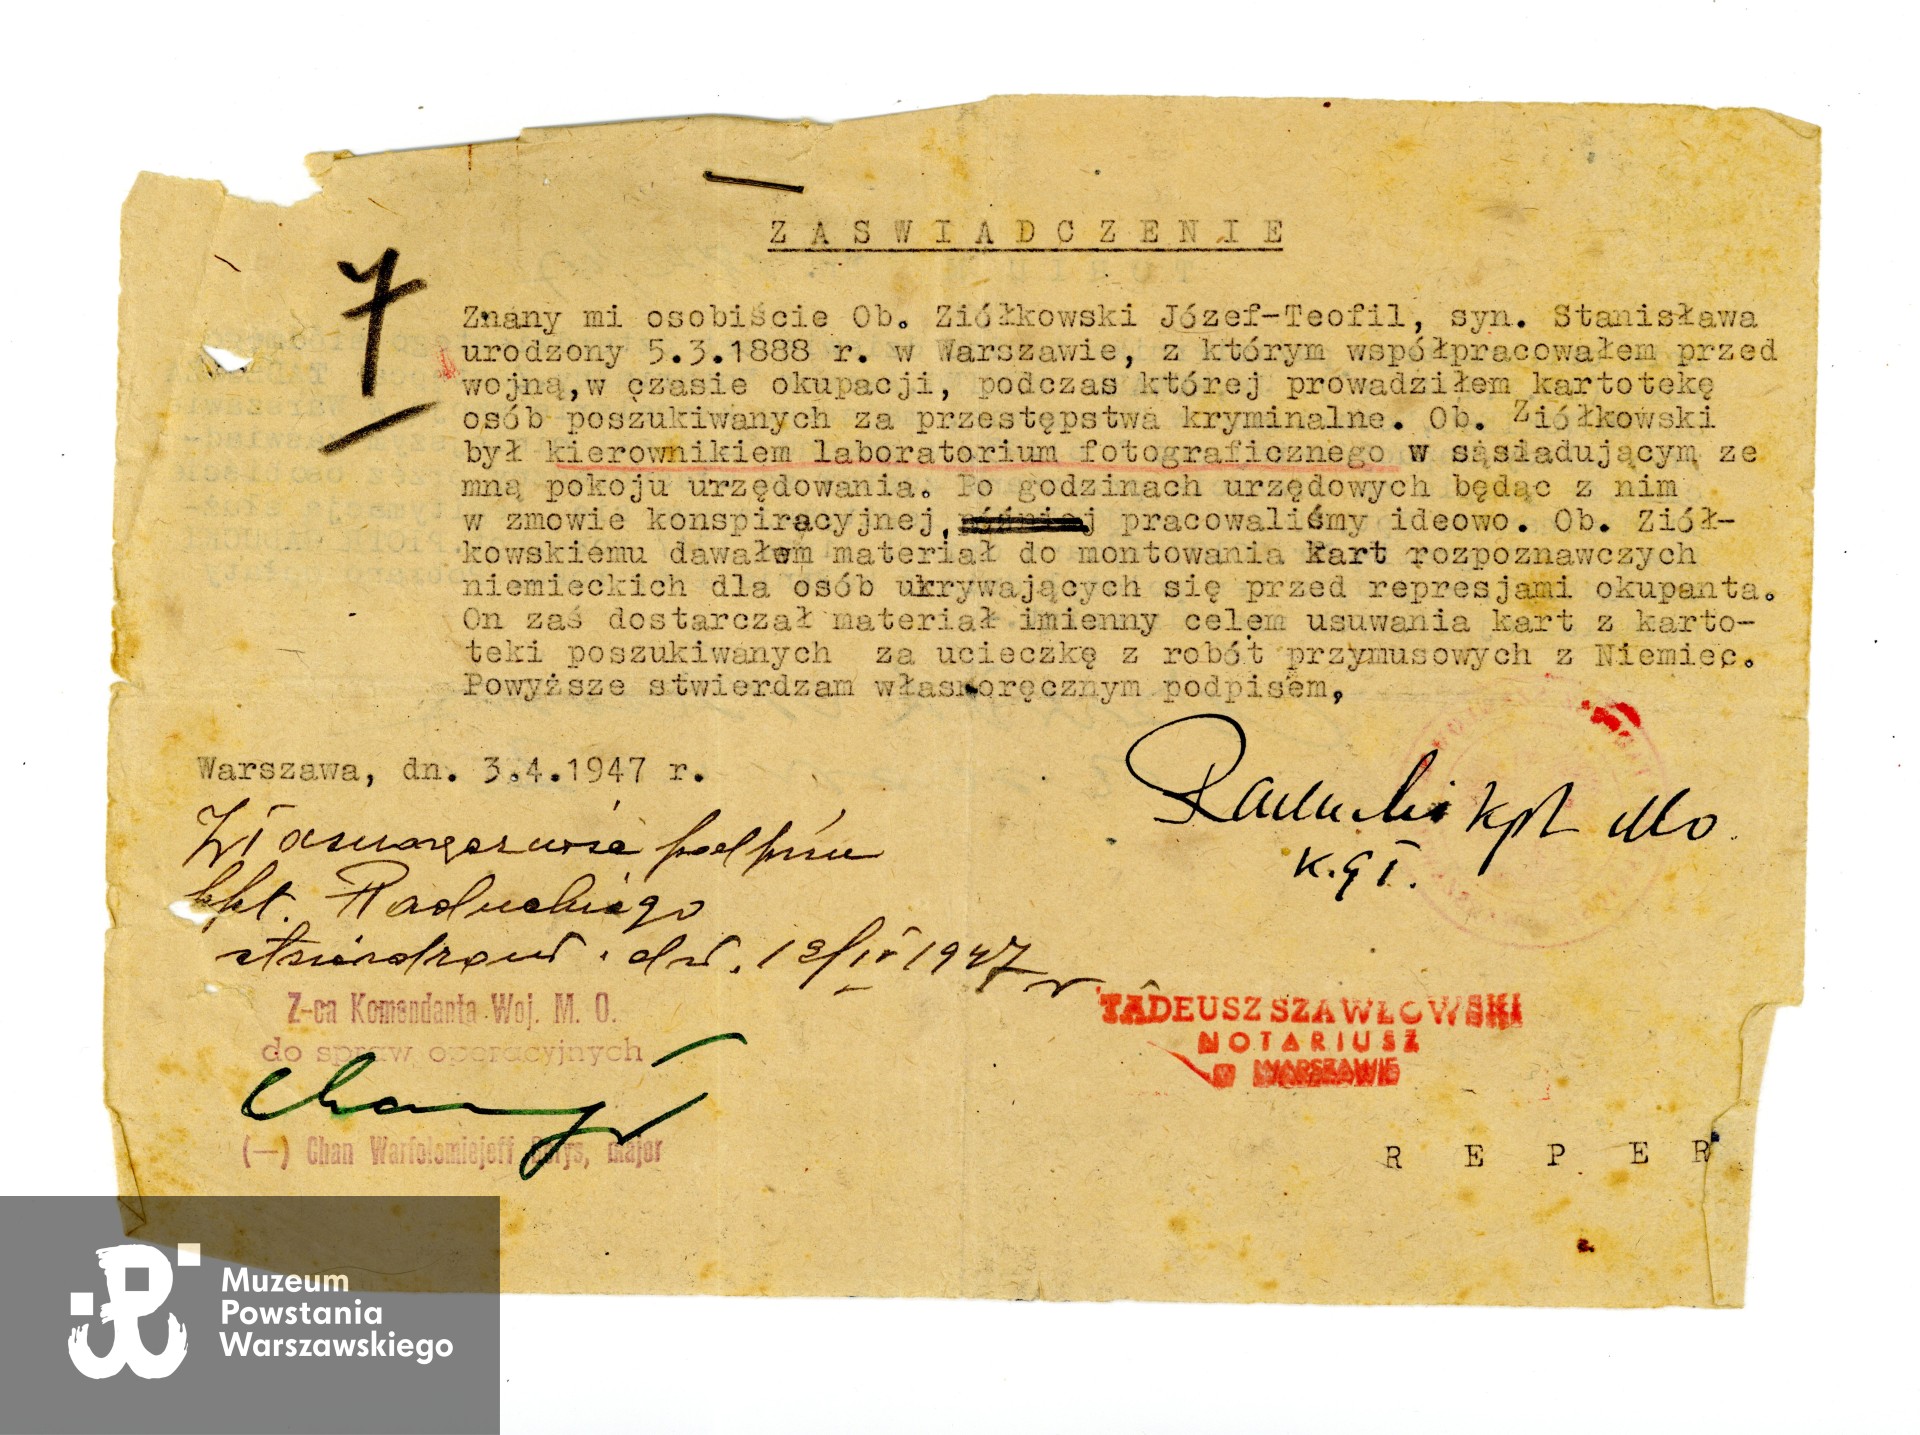 Z A S W I A D C Z E N I E
7
Znany mi osobiście Ob. Ziółkowski Józef-Teofil, syn. Stanisława
urodzony 5.3.1888 r. w Warszawie, z którym współpracowałem przed
wojną,w czasie okupacji, podczas której prowadziłem kartotekę
osób poszukiwanych za przestępstwa kryminalne. Ob. Ziółkowski
był kierownikiem laboratorium fotograficznego w sąsiadującym ze
mną pokoju urzędowania. Po godzinach urzędowych będąc z nim
w zmowie konspiracyjnej, pracowaliśmy ideowo. Ob. Ziół-
kowskiemu dawałem materiał do montowania kart rozpoznawczych
niemieckich dla osób ukrywających się przed represjami okupanta.
On zaś dostarczał materiał imienny celem usuwania kart z karto-
teki poszukiwanych za ucieczkę z robót przymusowych z Niemiec.
Powyższe stwierdzam własnoręcznym podpisem,
Warszawa, dn. 3.4.1947 r.
Raducki kpt MO
K.G.
Własnoręczność podpisu
kpt. Raduckiego
stwierdzam. dn. 12/IV 1947 r
Z-ca Komendanta Woj. M. O.
do spraw operacyjnych
(—) Chan Warfołomiejeff Borys, major
TADEUSZ SZAWŁOWSKI
NOTARIUSZ
W WARSZAWIE
R E P E R
Muzeum
Powstania
Warszawskiego